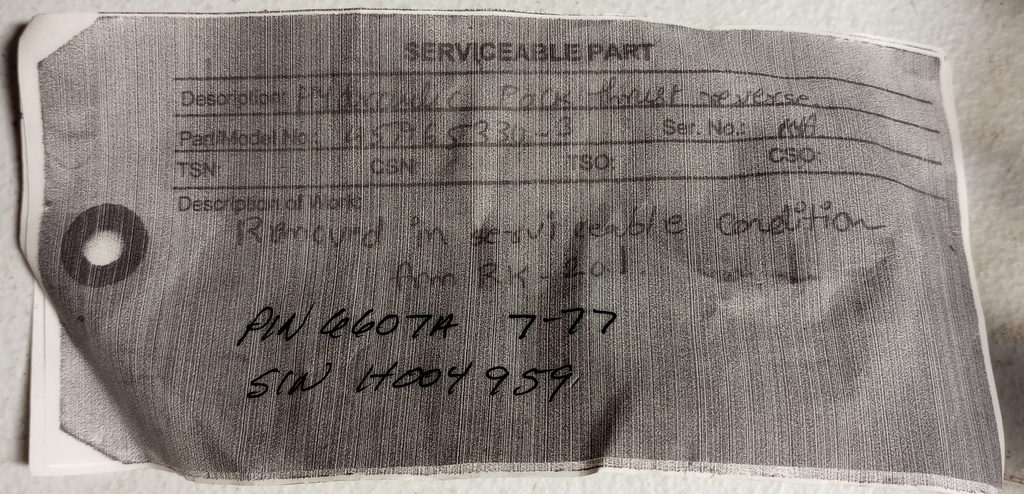 SERVICEABLE PART
Description: Hydraulic Pack thrust reverse
Part/Model No: Ser. No.:
TSN: CSN: TSO: CSO:
Description of Work:
Removed in serviceable condition
from RK-201.
P/N 6607A 7-77
S/N H004959